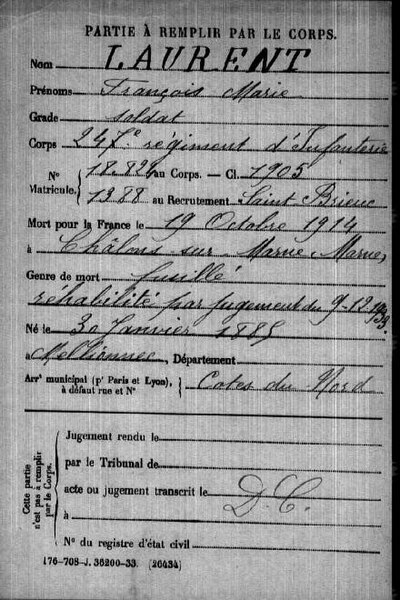 PARTIE À REMPLIR PAR LE CORPS.
Nom LAURENT
Prénoms François Marie
Grade soldat
Corps 247e régiment d'Infanterie
N° Matricule, { 18.824 au Corps. — Cl. 1905
1388 au Recrutement Saint Brieuc
Mort pour la France le 19 Octobre 1914
à Châlons sur Marne (Marne)
Genre de mort fusillé
réhabilité par jugement du 9-12-1933.
Né le 30 Janvier 1885
à Mellionnec, Département
Arr^t municipal (p^r Paris et Lyon), à défaut rue et N° } Cotes du Nord
Cette partie n'est pas à remplir par le Corps.
Jugement rendu le
par le Tribunal de
acte ou jugement transcrit le D.C.
à
N° du registre d'état civil
176-708-J. 36200-33. (26434)